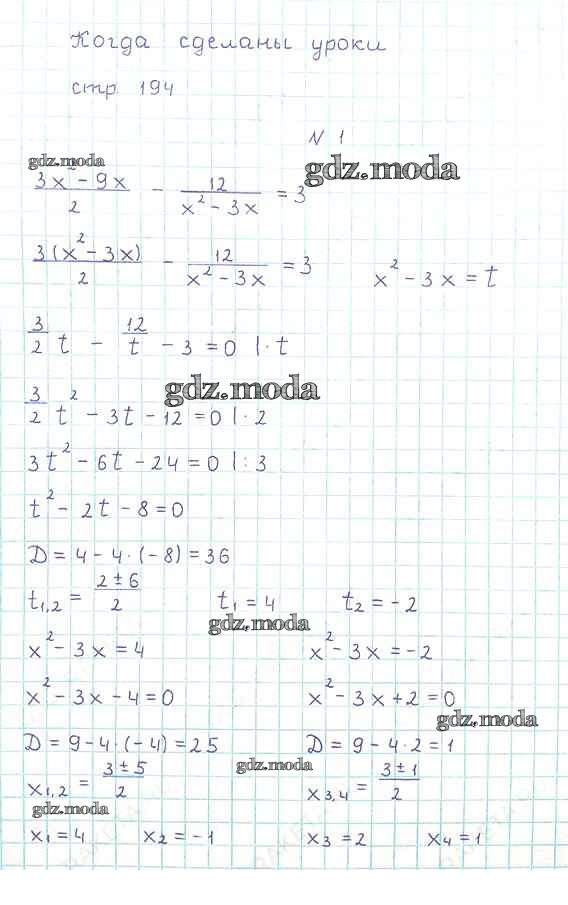 Когда сделаны уроки
стр 194
N 1
gdz.moda
gdz.moda
(3x² - 9x)/2 - 12/(x² - 3x) = 3
3(x² - 3x)/2 - 12/(x² - 3x) = 3 x² - 3x = t
3/2 t - 12/t - 3 = 0 |· t
gdz.moda
3/2 t² - 3t - 12 = 0 |· 2
3t² - 6t - 24 = 0 |: 3
t² - 2t - 8 = 0
D = 4 - 4·(-8) = 36
t1,2 = (2 ± 6)/2 t1 = 4 t2 = -2
gdz.moda
x² - 3x = 4 x² - 3x = -2
x² - 3x - 4 = 0 x² - 3x + 2 = 0
gdz.moda
D = 9 - 4·(-4) = 25 D = 9 - 4·2 = 1
gdz.moda
x1,2 = (3 ± 5)/2 x3,4 = (3 ± 1)/2
gdz.moda
x1 = 4 x2 = -1 x3 = 2 x4 = 1